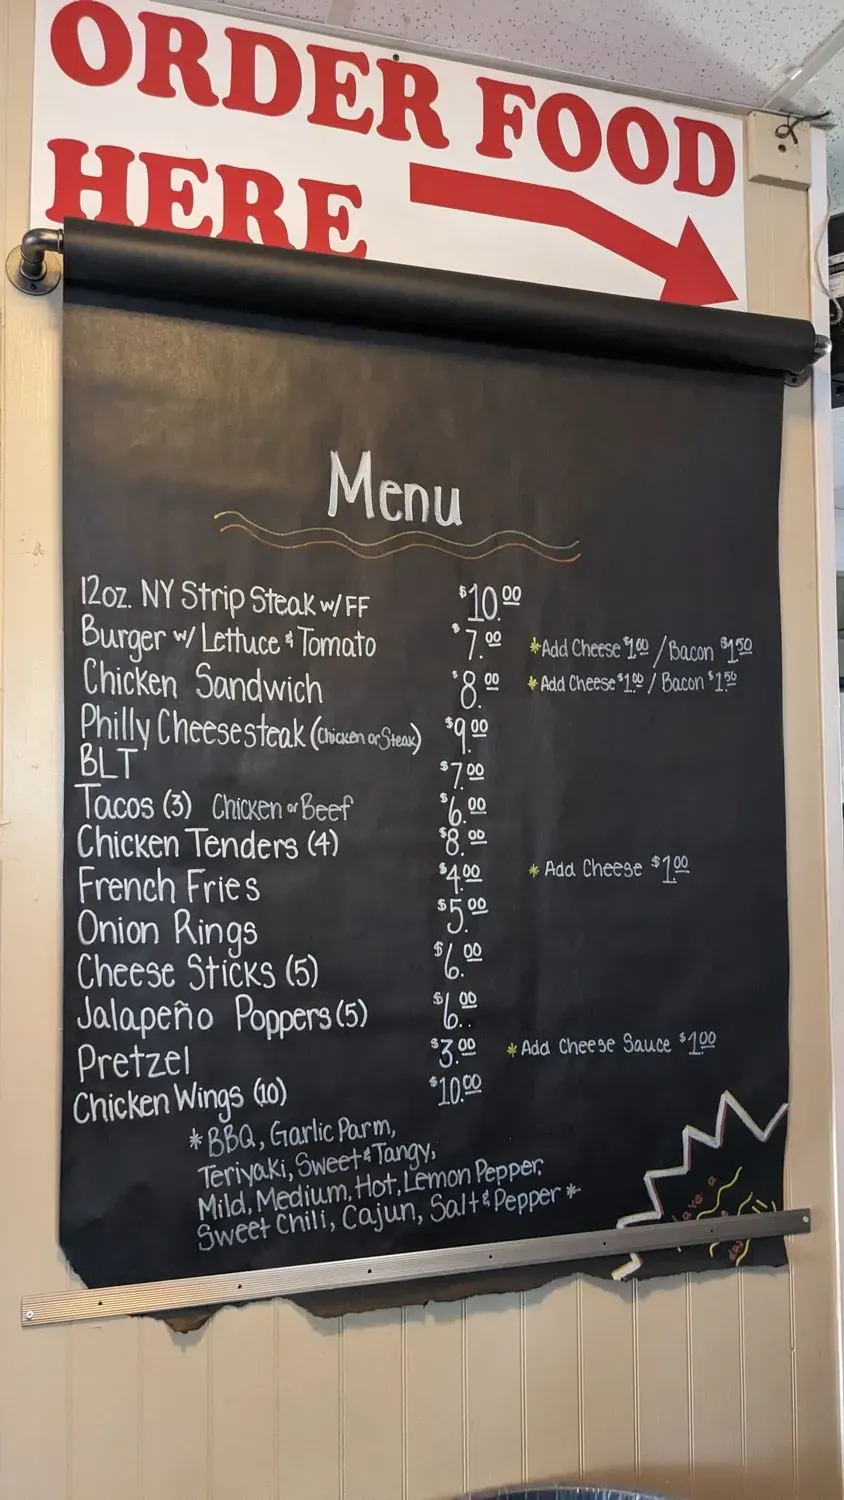 ORDER FOOD
HERE
Menu
12oz. NY Strip Steak w/ FF $10.00
Burger w/ Lettuce & Tomato $7.00 *Add Cheese $1.00 / Bacon $1.50
Chicken Sandwich $8.00 *Add Cheese $1.00 / Bacon $1.50
Philly Cheesesteak (Chicken or Steak) $9.00
BLT $7.00
Tacos (3) Chicken or Beef $6.00
Chicken Tenders (4) $8.00
French Fries $4.00 * Add Cheese $1.00
Onion Rings $5.00
Cheese Sticks (5) $6.00
Jalapeño Poppers (5) $6.00
Pretzel $3.00 *Add Cheese Sauce $1.00
Chicken Wings (10) $10.00
*BBQ, Garlic Parm,
Teriyaki, Sweet & Tangy,
Mild, Medium, Hot, Lemon Pepper,
Sweet Chili, Cajun, Salt & Pepper *